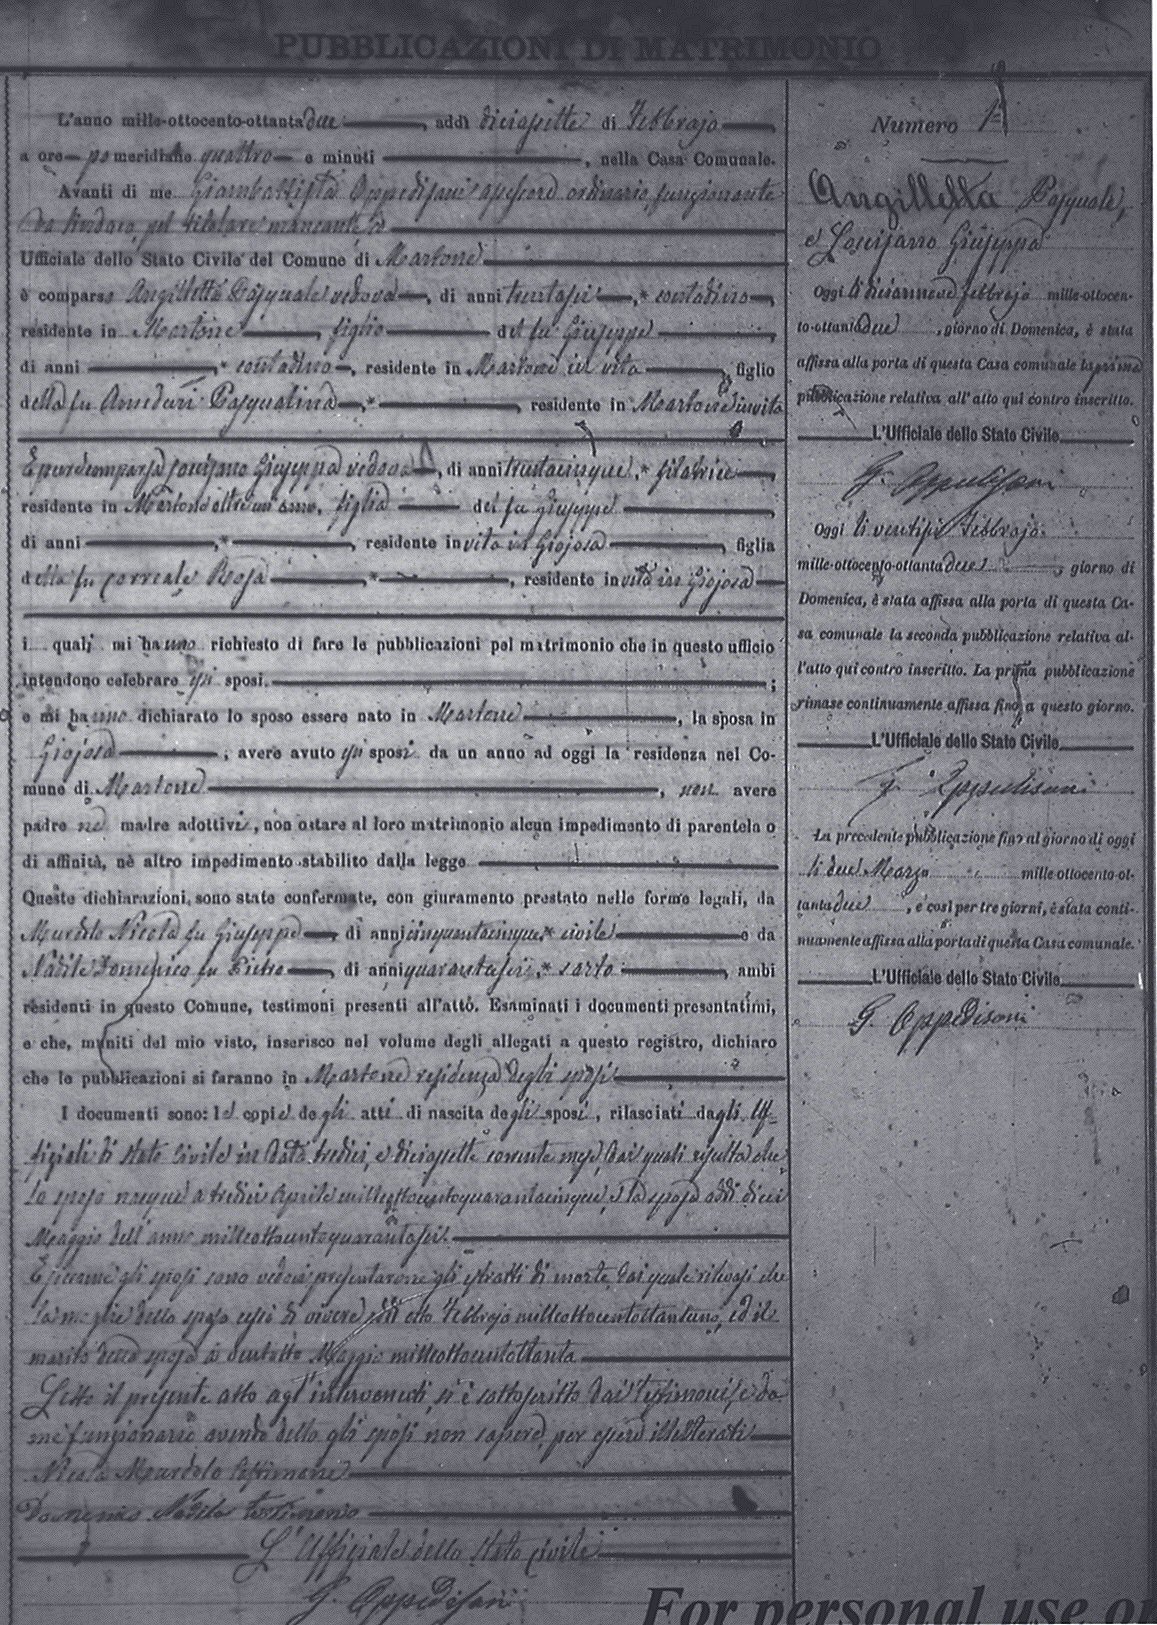 PUBBLICAZIONI DI MATRIMONIO
L'anno mille-ottocento-ottantadue, addì diciassette di Febbrajo
a ore pomeridiane quattro e minuti , nella Casa Comunale.
Avanti di me Giambattista Oppedisani assessore ordinario funzionante
da Sindaco, pel titolare mancante,
Ufficiale dello Stato Civile del Comune di Martone
è comparso Angilletta Pasquale vedovo, di anni trentasei, contadino,
residente in Martone, figlio del fu Giuseppe,
di anni , contadino, residente in Martone in vita, figlio
della fu Pasqualina, , residente in Martone in vita
È pure comparsa Giuseppa vedova, di anni trentacinque, filatrice
residente in Martone oltre un anno, figlia del fu Giuseppe
di anni , , residente in vita in Giojosa, figlia
della fu Correale Rosa, , residente in vita in Giojosa
i quali mi hanno richiesto di fare le pubblicazioni pel matrimonio che in questo ufficio
intendono celebrare gli sposi ;
e mi hanno dichiarato lo sposo essere nato in Martone, la sposa in
Giojosa, avere avuto gli sposi da un anno ad oggi la residenza nel Co-
mune di Martone, non avere
padre nè madre adottivi, non ostare al loro matrimonio alcun impedimento di parentela o
di affinità, nè altro impedimento stabilito dalla legge
Queste dichiarazioni sono state confermate, con giuramento prestato nelle forme legali, da
Nicola fu Giuseppe, di anni cinquantacinque, civile e da
Nadile Domenico fu Pietro, di anni quarantasei, sarto, ambi
residenti in questo Comune, testimoni presenti all'atto. Esaminati i documenti presentatimi,
e che, muniti del mio visto, inserisco nel volume degli allegati a questo registro, dichiaro
che le pubblicazioni si faranno in Martone residenza degli sposi
I documenti sono: le copie degli atti di nascita degli sposi, rilasciati dagli Uf-
fiziali di Stato Civile in data tredici, e diciassette corrente mese, dai quali risulta che
lo sposo nacque a tredici Aprile milleottocentoquarantacinque, e la sposa addì dieci
Maggio dell'anno milleottocentoquarantasei.
E siccome gli sposi sono vedovi presentarono gli estratti di morte, dai quali rilevasi che
la moglie dello sposo cessò di vivere otto Febbrajo milleottocentottantuno, ed il
marito della sposa a ventotto Maggio milleottocentottanta
Letto il presente atto agl'intervenuti, si è sottoscritto dai testimoni, e da
me funzionario avendo detto gli sposi non sapere, per essere illetterati
Nicola testimone
Domenico Nadile testimonio
L'Uffiziale dello Stato Civile
G. Oppedisani
Numero 1
Angilletta Pasquale,
e Giuseppa
Oggi li diciannove Febbrajo mille-ottocen-
to-ottantadue, giorno di Domenica, è stata
affissa alla porta di questa Casa comunale la prima
pubblicazione relativa all'atto qui contro inscritto.
L'Ufficiale dello Stato Civile
G. Oppedisani
Oggi li ventisei Febbrajo
mille-ottocento-ottantadue, giorno di
Domenica, è stata affissa alla porta di questa Ca-
sa comunale la seconda pubblicazione relativa al-
l'atto qui contro inscritto. La prima pubblicazione
rimase continuamente affissa fino a questo giorno.
L'Ufficiale dello Stato Civile
G. Oppedisani
La precedente pubblicazione fino al giorno di oggi
li due Marzo mille-ottocento-ot-
tantadue, e così per tre giorni, è stata conti-
nuamente affissa alla porta di questa Casa comunale.
L'Ufficiale dello Stato Civile
G. Oppedisani
For personal use on